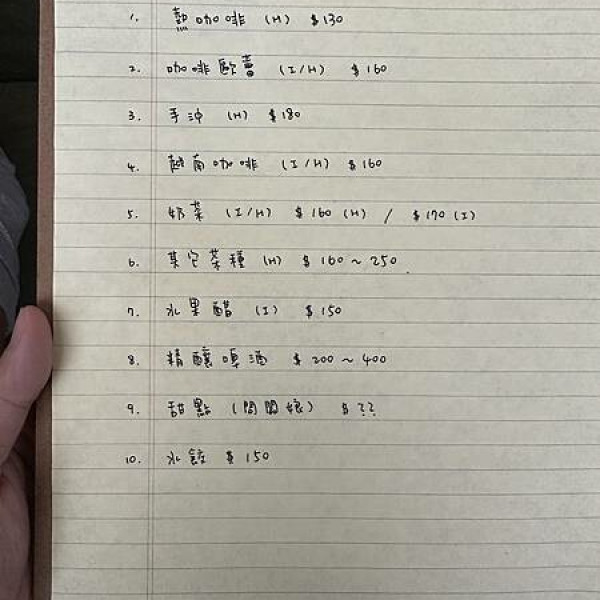 1. 熱咖啡 (H) $130
2. 咖啡歐蕾 (I/H) $160
3. 手沖 (H) $180
4. 越南咖啡 (I/H) $160
5. 奶茶 (I/H) $160 (H) / $170 (I)
6. 其它茶種 (H) $160~250
7. 水果醋 (I) $150
8. 精釀啤酒 $200~400
9. 甜點 (問闆娘) $??
10. 水餃 $150